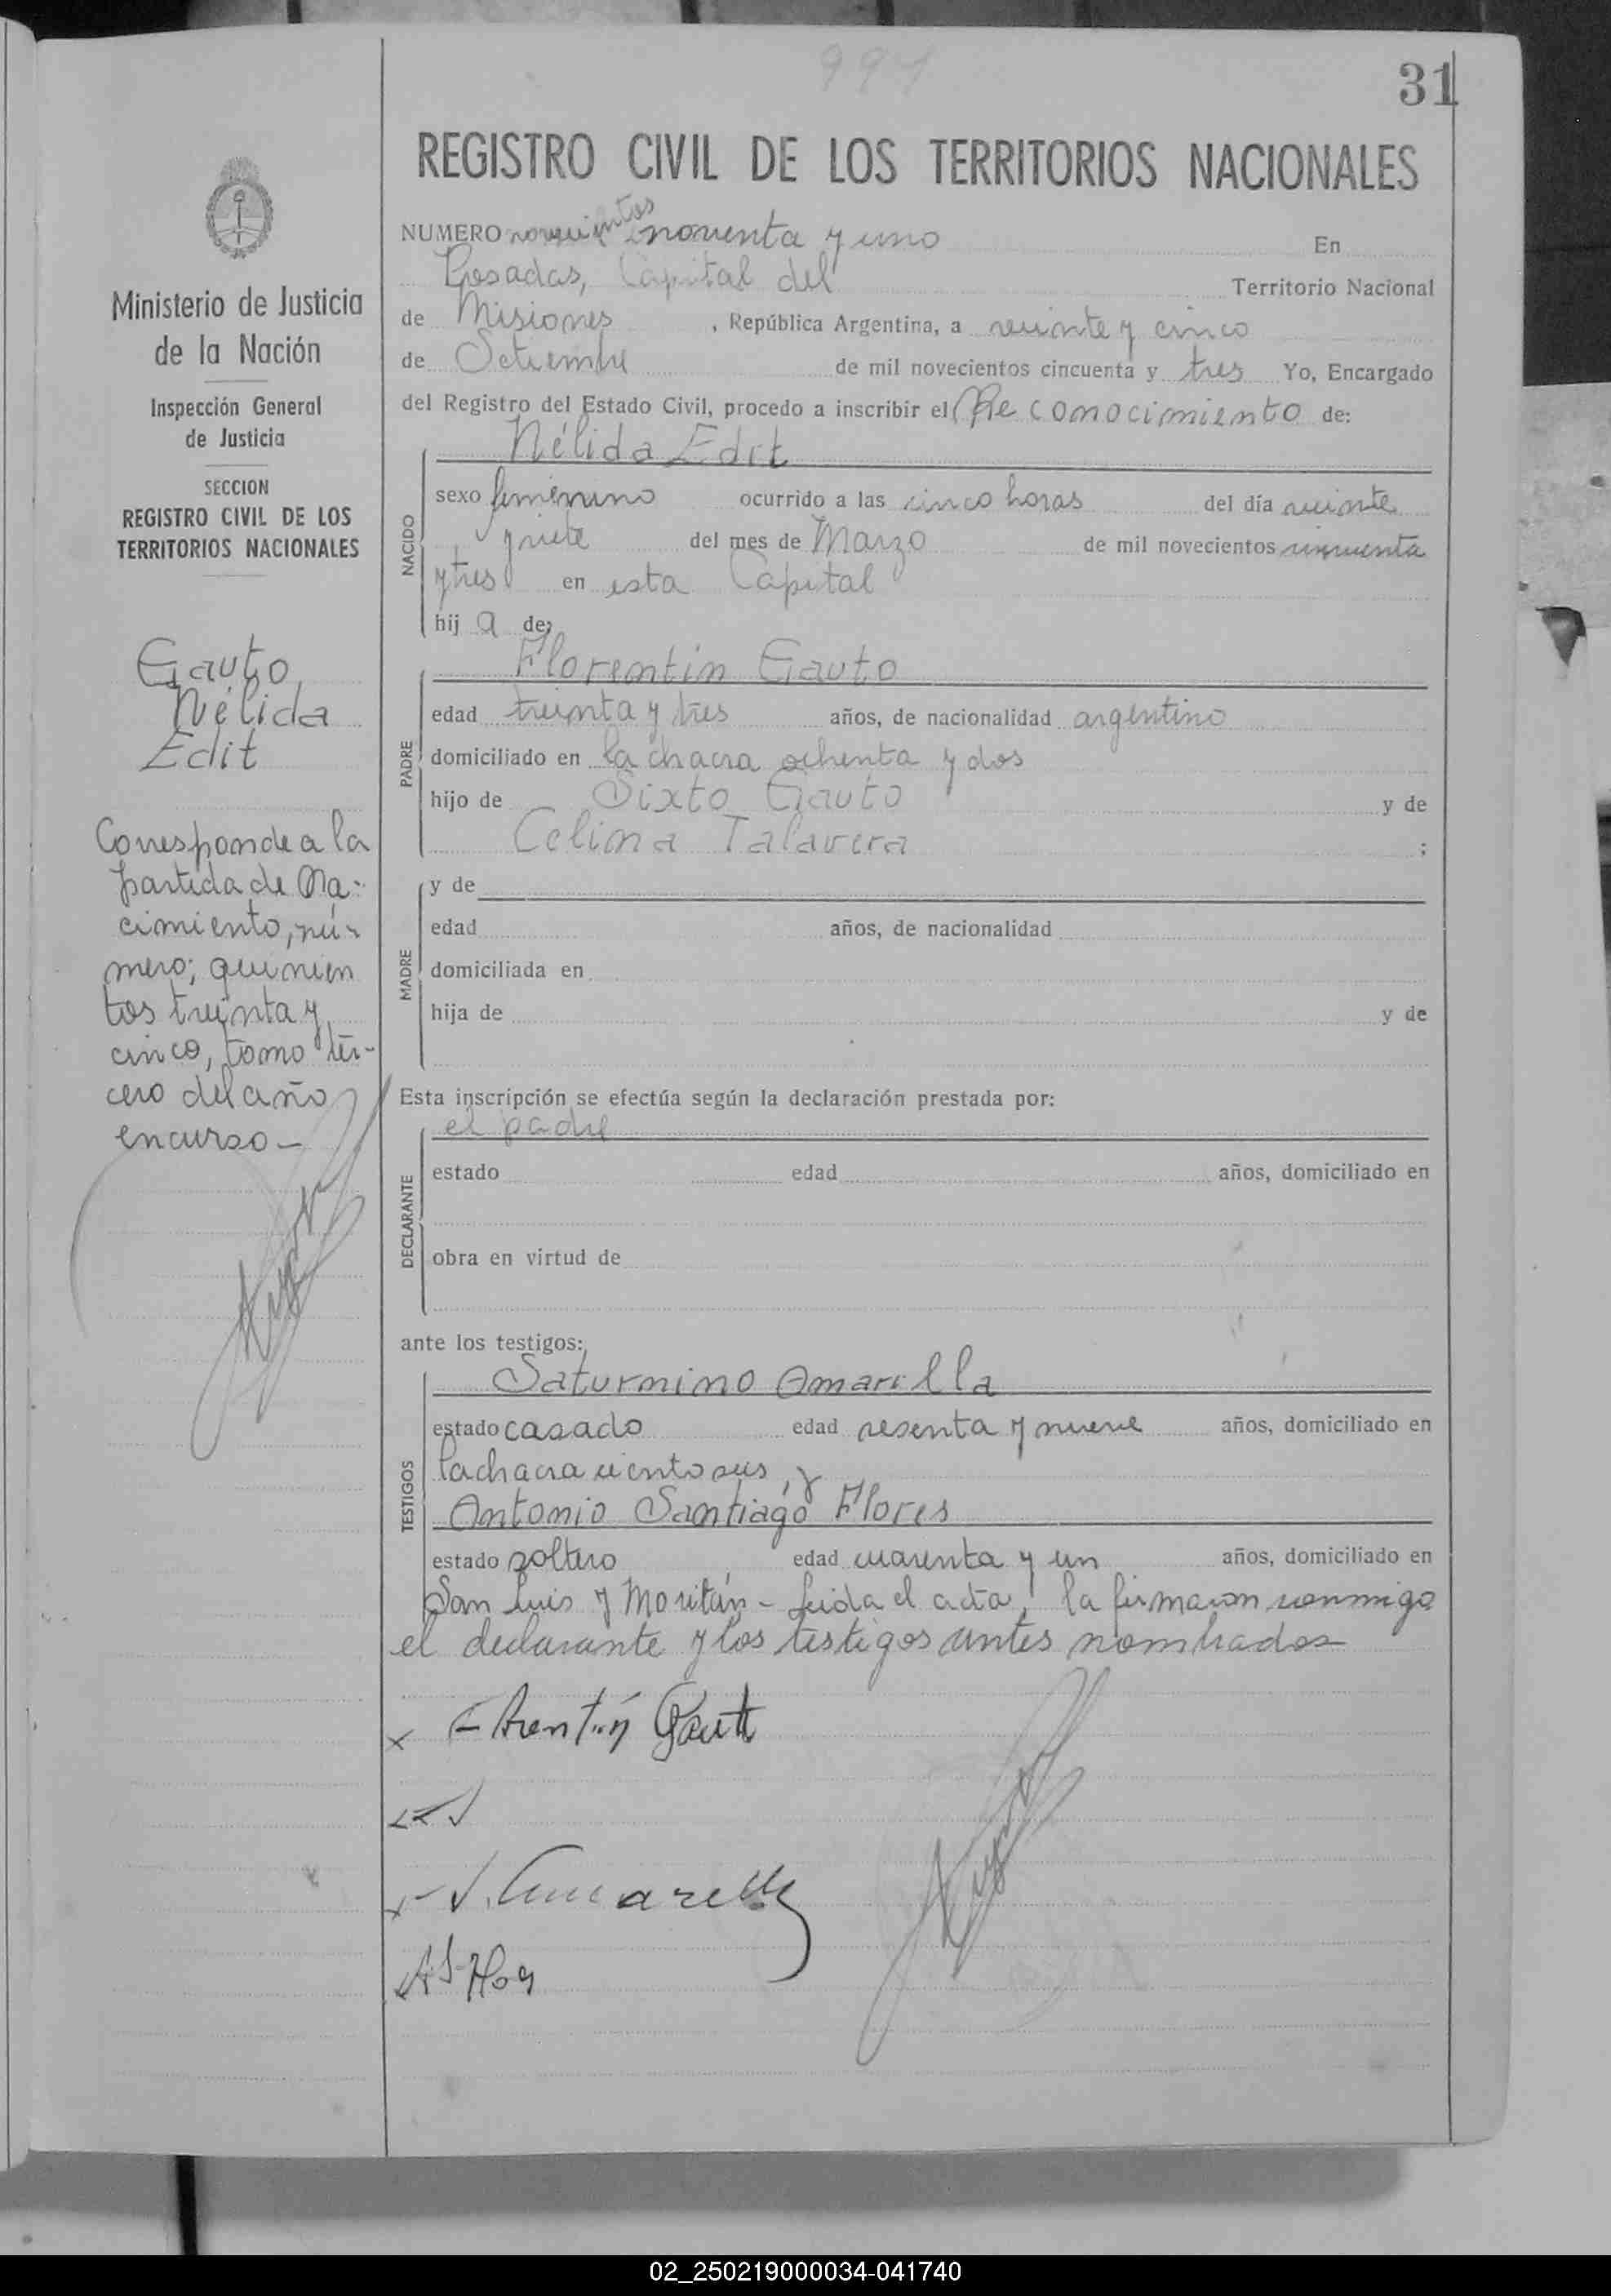 991
31
REGISTRO CIVIL DE LOS TERRITORIOS NACIONALES
NUMERO novecientos noventa y uno En
Posadas, Capital del Territorio Nacional
de Misiones, República Argentina, a veinte y cinco
de Setiembre de mil novecientos cincuenta y tres Yo, Encargado
del Registro del Estado Civil, procedo a inscribir el Reconocimiento de:
Nélida Edit
NACIDO
sexo femenino ocurrido a las cinco horas del día veinte
y siete del mes de Marzo de mil novecientos cincuenta
y tres en esta Capital
hij a de:
Florentin Gauto
PADRE
edad treinta y tres años, de nacionalidad argentino
domiciliado en la chacra ochenta y dos
hijo de Sixto Gauto y de
Celina Talavera ;
MADRE
y de
edad años, de nacionalidad
domiciliada en
hija de y de
Esta inscripción se efectúa según la declaración prestada por:
el padre
DECLARANTE
estado edad años, domiciliado en
obra en virtud de
ante los testigos:
Saturnino Amarilla
TESTIGOS
estado casado edad sesenta y nueve años, domiciliado en
la chacra ciento seis, y
Antonio Santiago Flores
estado soltero edad cuarenta y un años, domiciliado en
San Luis y Moritán - Leida el acta, la firmaron conmigo
el declarante y los testigos antes nombrados
x Florentín Gauto
x
x S. Amarilla
x A S Flores
Ministerio de Justicia
de la Nación
Inspección General
de Justicia
SECCION
REGISTRO CIVIL DE LOS
TERRITORIOS NACIONALES
Gauto
Nélida
Edit
Corresponde a la
partida de Na-
cimiento, nú-
mero; quinien
tos treinta y
cinco, tomo ter-
cero del año
en curso -
02_250219000034-041740